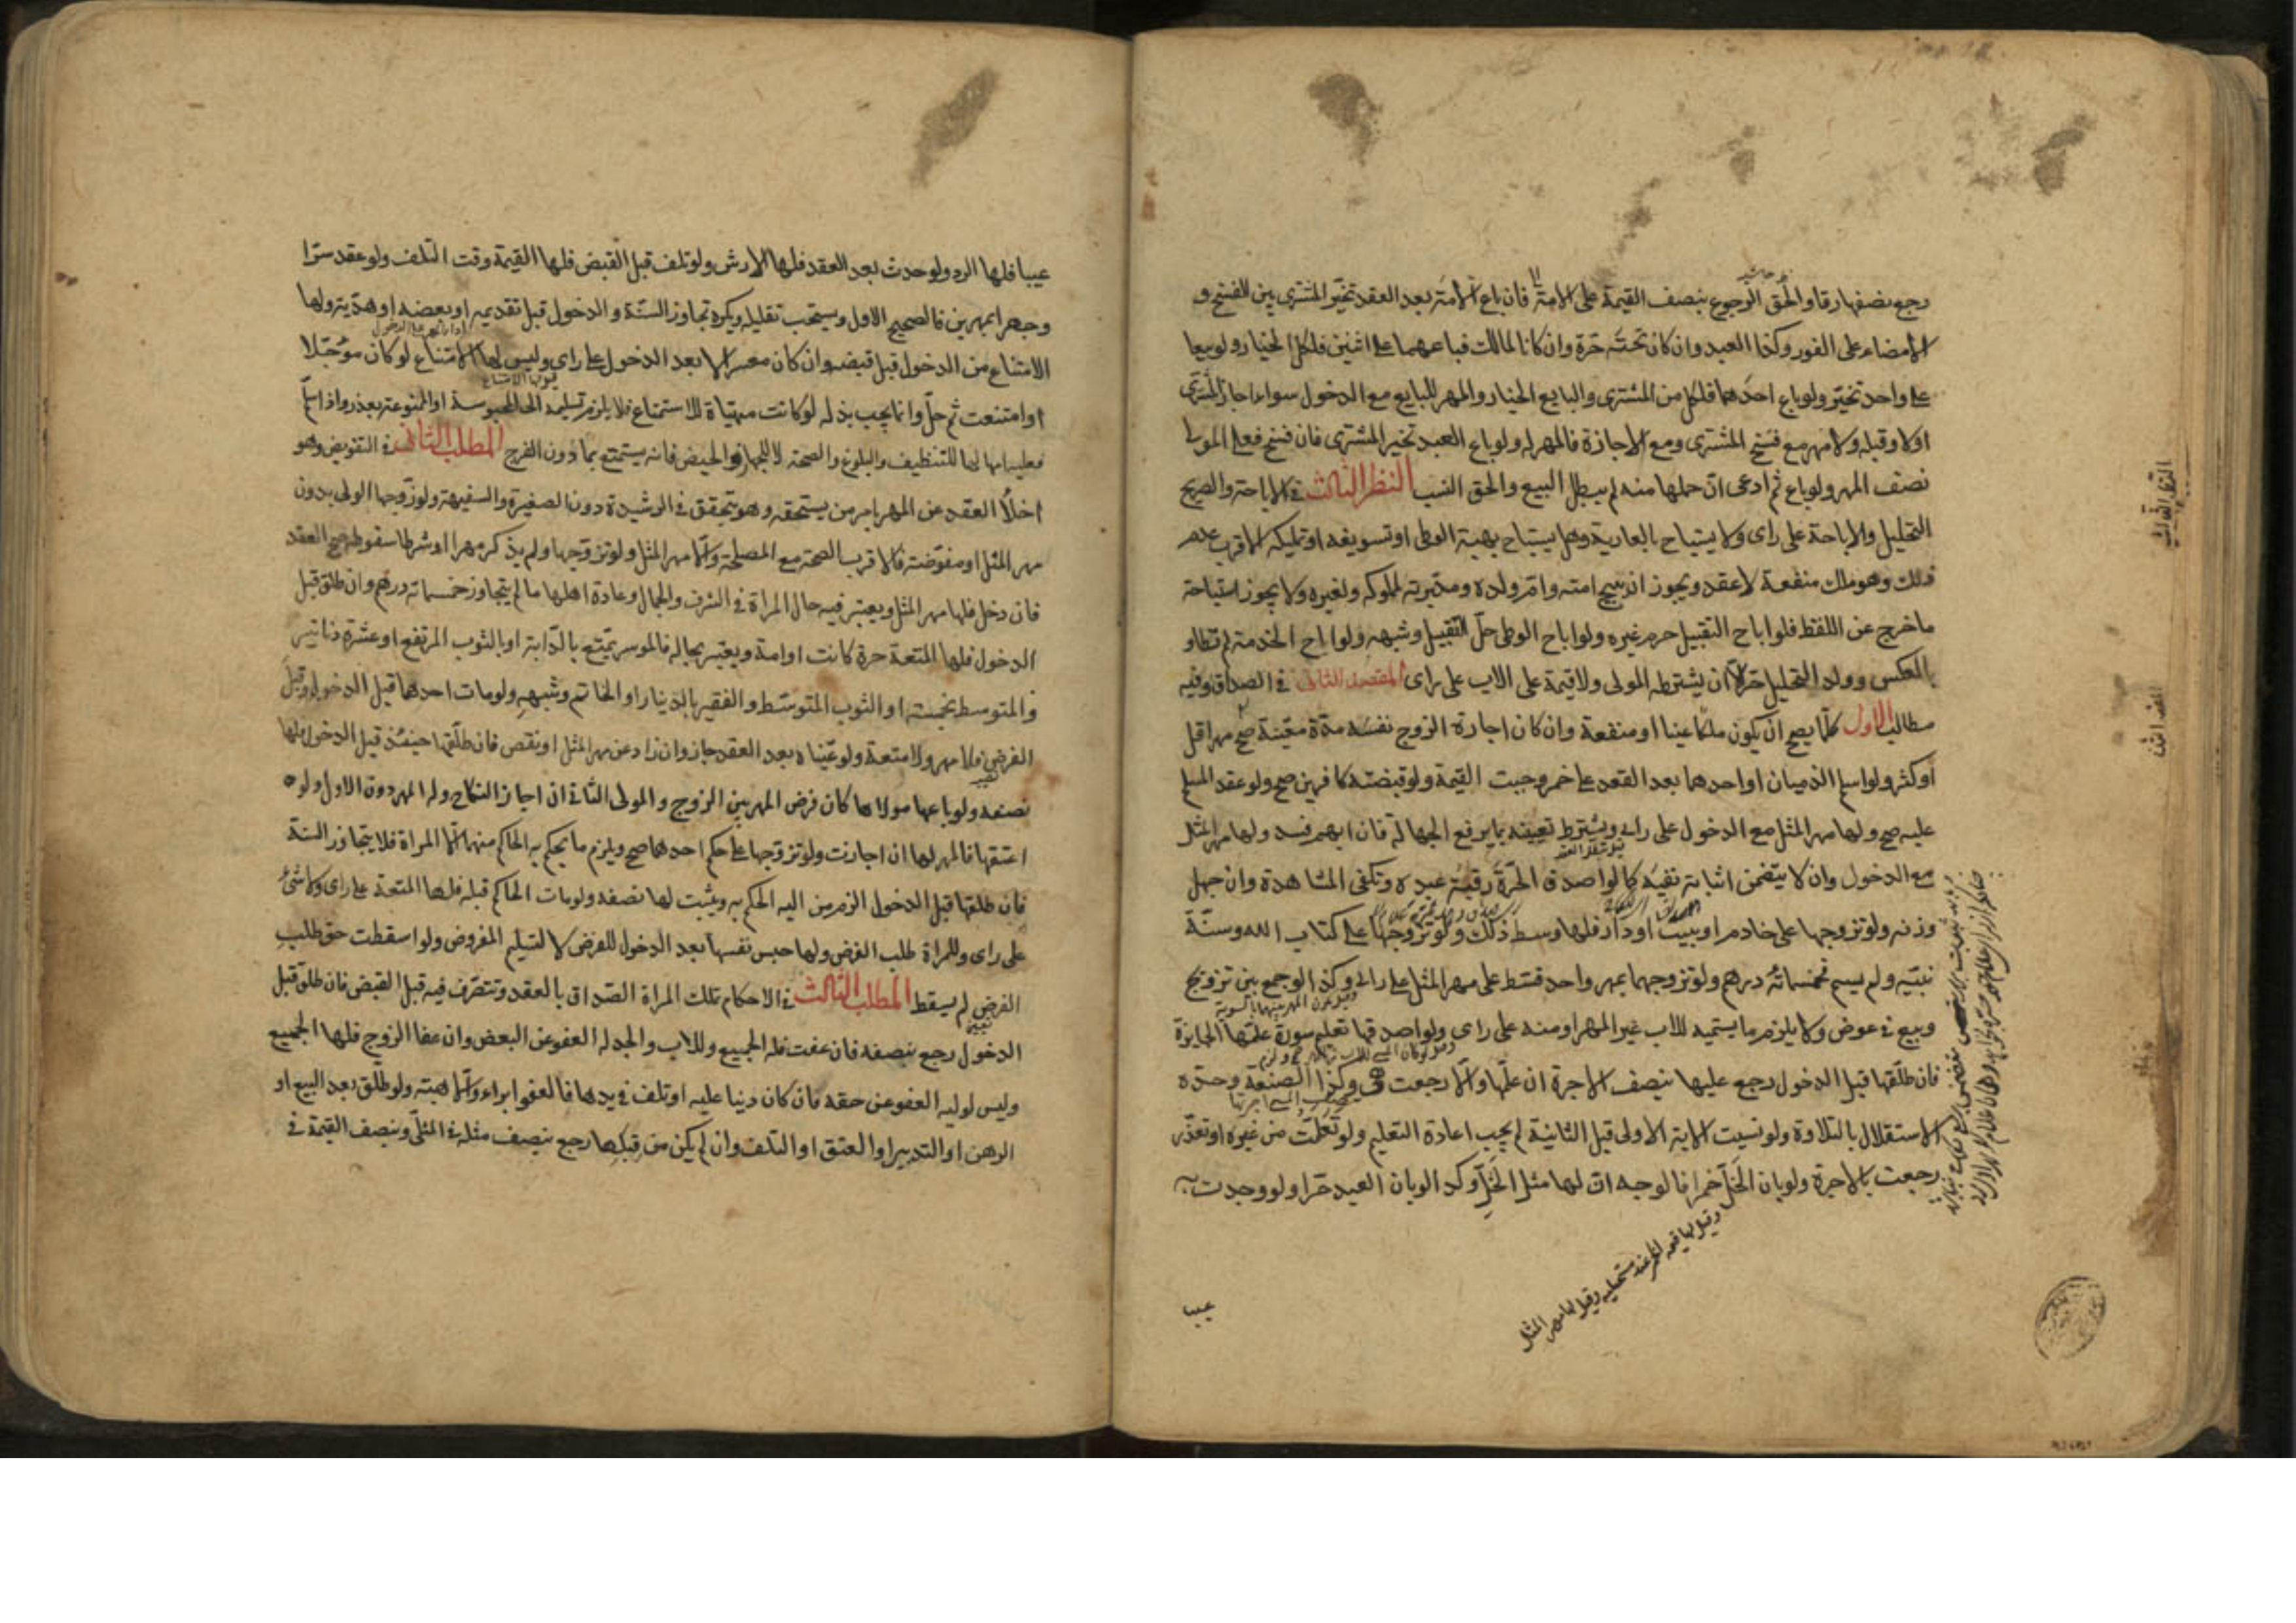 رجع نصفها رقا والحق الرجوع بنصف القيمة على الامة فان باع الامة بعد العقد تخير المشترى بين الفسخ و
الامضاء على الفور وكذا العبد وان كان تحته حرة وان كانا لمالك فباعهما على اثنين فلكل الخيار ولو بيعا
على واحد تخير ولو باع احدهما فلكل من المشترى والبايع الخيار والمهر للبايع مع الدخول سواء اجاز المشترى
اولا وقبله ولا مهر مع فسخ المشترى ومع الاجازة فالمهر له ولو باع العبد تخير المشترى فان فسخ فعلى المولى
نصف المهر ولو باع ثم ادعى ان حملها منه لم يبطل البيع والحق النسب النظر الثالث فى الاباحة والصريح
التحليل والاباحة على راى ولا يستباح بالعارية وهل يستباح بهبة الوطى او تسويغه او تمليكه الاقرب عدم
ذلك وهو ملك منفعة لا عقد ويجوز ان يبيح امته وام ولده ومدبرته لمملوكه ولغيره ولا يجوز استباحة
ما خرج عن اللفظ فلو اباح التقبيل حرم غيره ولو اباح الوطى حل التقبيل وشبهه ولو اباح الخدمة لم تطاو
بالعكس وولد التحليل حر الا ان يشترطه المولى ولا قيمة على الاب على راى المقصد الثانى فى الصداق وفيه
مطالب الاول كلما يصح ان يكون ملكا عينا او منفعة وان كان اجارة الزوج نفسه مدة معينة صح مهرا قل
او كثر ولو اسلم الذميان او احدهما بعد العقد على خمر وجبت القيمة ولو قبضته كافرين صح ولو عقد المسلم
عليه صح ولها مهر المثل مع الدخول على راى ويشترط تعيينه بما يرفع الجهالة فان ابهم فسد ولها مهر المثل
مع الدخول وان لا يتضمن اثباته نفيه كما لو اصدق الحرة رقبة عبده وتكفى المشاهدة وان جهل
وزنه ولو تزوجها على خادم او بيت او دار فلها وسط ذلك ولو تزوجها على كتاب الله وسنة
نبيه ولم يسم فخمسمائة درهم ولو تزوجهما بمهر واحد قسط على مهر المثل على راى وكذا لو جمع بين تزويج
وبيع فى عوض ولا يلزم ما يسميه للاب غير المهر او منه على راى ولو اصدقها تعليم سورة علمها الجايزة
فان طلقها قبل الدخول رجع عليها بنصف الاجرة ان علمها والا رجعت هى وكذا الصنعة وحده
الاستقلال بالتلاوة ولو نسيت الاية الاولى قبل الثانية لم يجب اعادة التعليم ولو تعلمت من غيره او تعذر
رجعت بالاجرة ولو بان الخل خمرا فالوجه ان لها مثل الخل وكذا لو بان العبد حرا ولو وجدت به
وقيل لها قيمة الخمر عند مستحليه وقيل لها مهر المثل
عيبا
النظر الثالث
عيبا فلها الرد ولو حدث بعد العقد فلها الارش ولو تلف قبل القبض فلها القيمة وقت التلف ولو عقد سرا
وجهرا بمهرين فالصحيح الاول ويستحب تقليله ويكره تجاوز السنة والدخول قبل تقديمه او بعضه او هدية ولها
الامتناع من الدخول قبل قبضه وان كان معسرا لا بعد الدخول على راى وليس لها الامتناع لو كان مؤجلا
او امتنعت ثم حل وانما يجب بذله لو كانت مهياة للاستمتاع فلا يلزم تسليمه الى المحبوسة او الممنوعة بعذر واذا سلم
فعليه امهالها للتنظيف والبلوغ والصحة لا للجهاز والحيض فانه يستمتع بما دون الفرج المطلب الثانى فى التفويض وهو
اخلاء العقد عن المهر بامر من يستحقه وهو يتحقق فى الرشيدة دون الصغيرة والسفيهة ولو زوجها الولى بدون
مهر المثل او مفوضة فالاقرب الصحة مع المصلحة والا مهر المثل ولو تزوجها ولم يذكر مهرا او شرطا سقوطه صح العقد
فان دخل فلها مهر المثل ويعتبر فيه حال المراة فى الشرف والجمال وعادة اهلها ما لم يتجاوز خمسمائة درهم وان طلق قبل
الدخول فلها المتعة حرة كانت او امة ويعتبر بحاله فالموسر يمتع بالدابة او بالثوب المرتفع او عشرة دنانير
والمتوسط بخمسة او الثوب المتوسط والفقير بالدينار او الخاتم وشبهه ولو مات احدهما قبل الدخول وقبل
الفرض فلا مهر ولا متعة ولو عيناه بعد العقد جاز وان زاد عن مهر المثل او نقص فان طلقها حينئذ قبل الدخول فلها
نصفه ولو باعها مولاها كان فرض المهر بين الزوج والمولى الثانى ان اجاز النكاح وله المهر دون الاول ولو
اعتقها فالمهر لها ان اجازت ولو تزوجها على حكم احدهما صح ويلزم ما يحكم به الحاكم منهما الا المراة فلا يتجاوز السنة
فان طلقها قبل الدخول الزم من اليه الحكم به ويثبت لها نصفه ولو مات الحاكم قبله فلها المتعة على راى ولا شئ
على راى وللمراة طلب الفرض ولها حبس نفسها بعد الدخول للفرض لا لتسليم المفروض ولو اسقطت حق طلب
الفرض لم يسقط المطلب الثالث فى الاحكام تملك المراة الصداق بالعقد وتتصرف فيه قبل القبض فان طلق قبل
الدخول رجع بنصفه فان عفت فله الجميع وللاب والجد له العفو عن البعض وان عفا الزوج فلها الجميع
وليس لوليه العفو عن حقه فان كان دينا عليه او تلف فى يدها فالعفو ابراء والا هبة ولو طلق بعد البيع او
الرهن او التدبير او العتق او التلف وان لم يكن من قبلها رجع بنصف مثله فى المثلى وبنصف القيمة فى